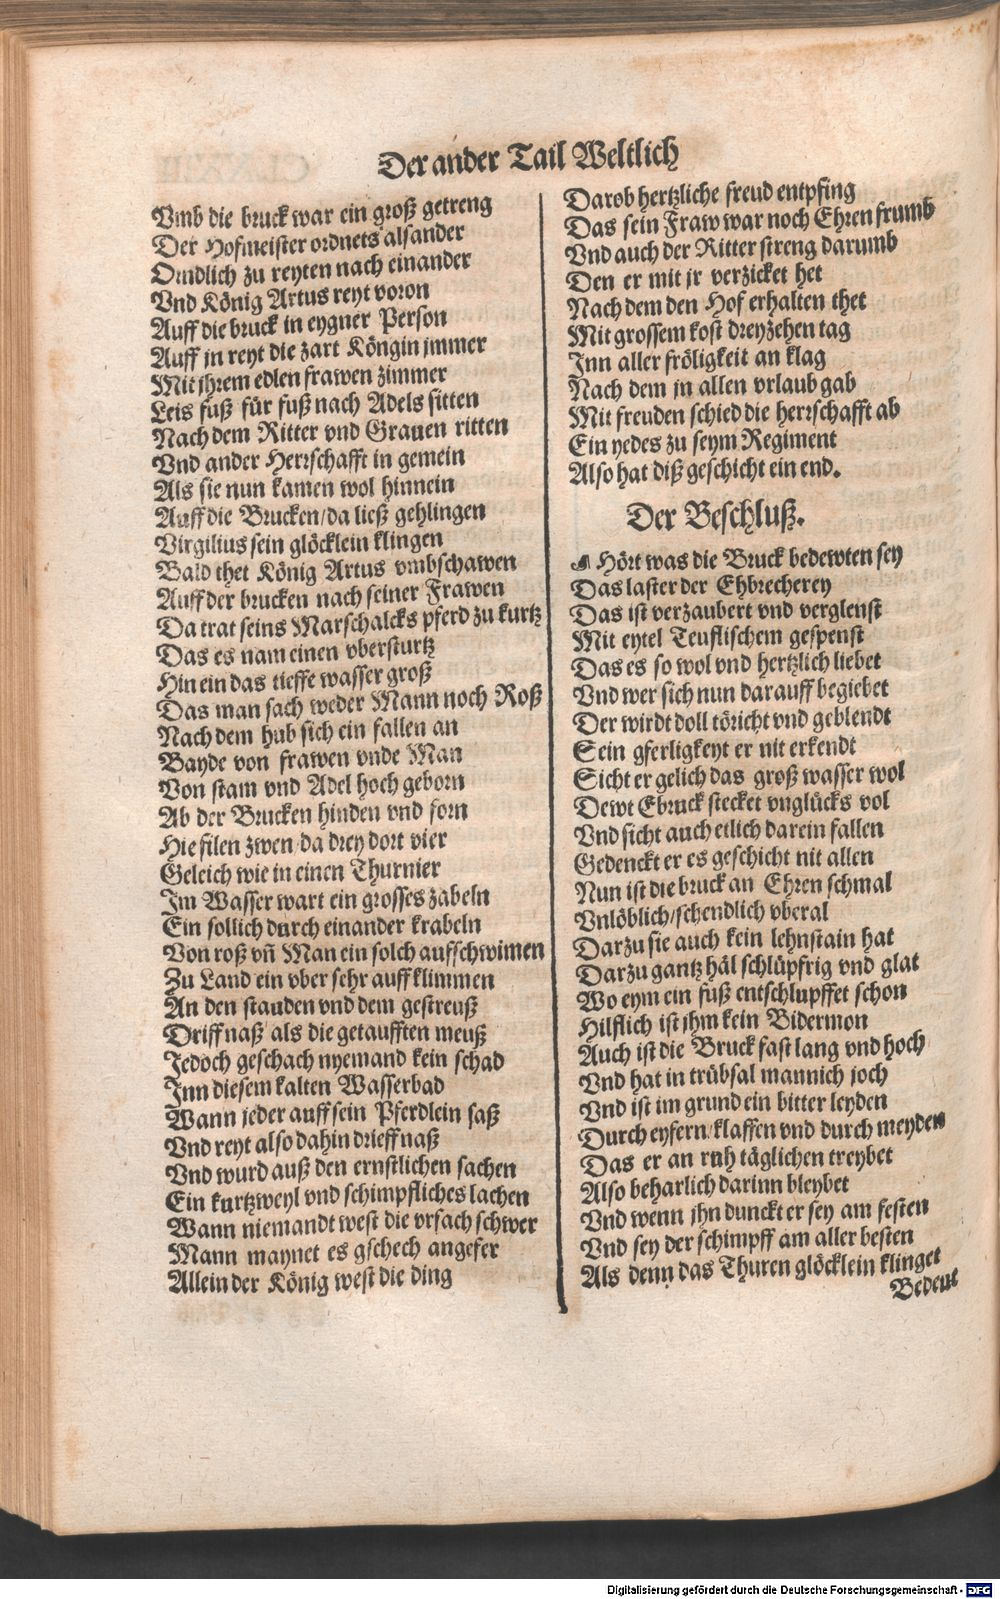 Der ander Tail Weltlich
Vmb die bruck war ein groß getreng
Der Hofmeister ordnets alsander
Ordlich zu reyten nach einander
Vnd König Artus reyt voron
Auff die bruck in eygner Person
Auff jn reyt die zart Köngin jmmer
Mit jhrem edlen frawen zimmer
Leis fuß für fuß nach Adels sitten
Nach dem Ritter vnd Grauen ritten
Vnd ander Herrschafft in gemein
Als sie nun kamen wol hinnein
Auff die Brucken/da ließ gehlingen
Virgilius sein glöcklein klingen
Bald thet König Artus vmbschawen
Auff der brucken nach seiner Frawen
Da trat seins Marschalcks pferd zu kurtz
Das es nam einen vbersturtz
Hin ein das tieffe wasser groß
Das man sach weder Mann noch Roß
Nach dem hub sich ein fallen an
Bayde von frawen vnde Man
Von stam vnd Adel hoch geborn
Ab der Brucken hinden vnd forn
Hie filen zwen/da drey dort vier
Geleich wie in einen Thurnier
Im Wasser wart ein grosses zabeln
Ein sollich durch einander krabeln
Von roß vñ Man ein solch auffschwimen
Zu Land ein vber sehr auff klimmen
An den stauden vnd dem gestreuß
Driff naß als die getaufften meuß
Jedoch geschach nyemand kein schad
Inn diesem kalten Wasserbad
Wann jeder auff sein Pferdlein saß
Vnd reyt also dahin drieff naß
Vnd wurd auß den ernstlichen sachen
Ein kurtzweyl vnd schimpfliches lachen
Wann niemandt west die vrsach schwer
Mann maynet es gschech angefer
Allein der König west die ding
Darob hertzliche freud entpfing
Das sein Fraw war noch Ehren frumb
Vnd auch der Ritter streng darumb
Den er mit jr verzicket het
Nach dem den Hof erhalten thet
Mit grossem kost dreyzehen tag
Inn aller fröligkeit an klag
Nach dem jn allen vrlaub gab
Mit freuden schied die herrschafft ab
Ein yedes zu seym Regiment
Also hat diß geschicht ein end.
Der Beschluß.
☙ Hört was die Bruck bedewten sey
Das laster der Ehbrecherey
Das ist verzaubert vnd verglenst
Mit eytel Teuflischem gespenst
Das es so wol vnd hertzlich liebet
Vnd wer sich nun darauff begiebet
Der wirdt doll töricht vnd geblendt
Sein gferligkeyt er nit erkendt
Sicht er gelich das groß wasser wol
Dewt Ebruck stecket vnglücks vol
Vnd sicht auch etlich darein fallen
Gedenckt er es geschicht nit allen
Nun ist die bruck an Ehren schmal
Vnlöblich/schendlich vberal
Darzu sie auch kein lehnstain hat
Darzu gantz häl schlüpfrig vnd glat
Wo eym ein fuß entschlupffet schon
Hilflich ist jhm kein Bidermon
Auch ist die Bruck fast lang vnd hoch
Vnd hat in trübsal mannich joch
Vnd ist im grund ein bitter leyden
Durch eyfern/klaffen vnd durch meyden
Das er an ruh täglichen treybet
Also beharlich darinn bleybet
Vnd wenn jhn dunckt er sey am festen
Vnd sey der schimpff am aller besten
Als denn das Thuren glöcklein klinget
Bedeut
Digitalisierung gefördert durch die Deutsche Forschungsgemeinschaft - DFG